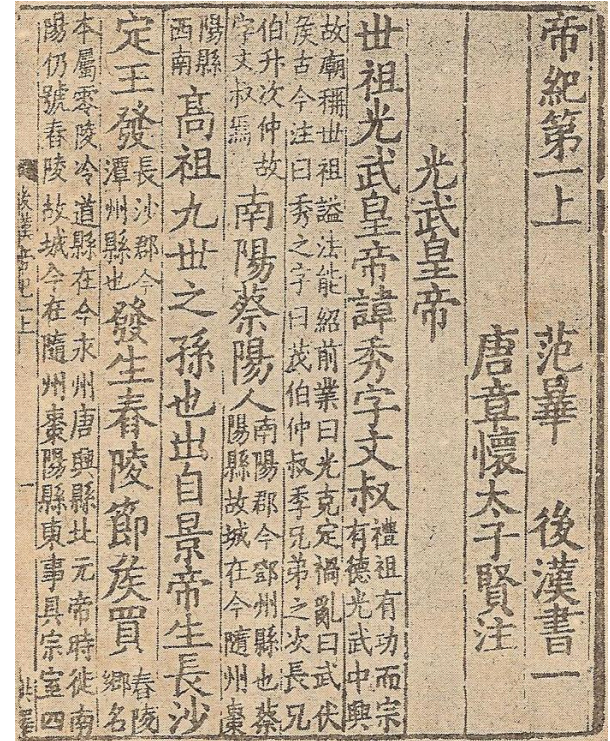 帝紀第一上 范曄 後漢書一
唐章懷太子賢注
光武皇帝
世祖光武皇帝諱秀字文叔禮祖有功而宗有德光武中興
故廟稱世祖謚法能紹前業曰光克定禍亂曰武伏
矦古今注曰秀之字曰茂伯仲叔季兄弟之次長兄
伯升次仲故字文叔焉南陽蔡陽人南陽郡今鄧州縣也蔡陽縣故城在今隨州棗
陽縣西南高祖九世之孫也出自景帝生長沙
定王發長沙郡今潭州縣也發生舂陵節矦買舂陵鄉名
本屬零陵冷道縣在今永州唐興縣北元帝時徙南
陽仍號舂陵故城今在隨州棗陽縣東事具宗室四